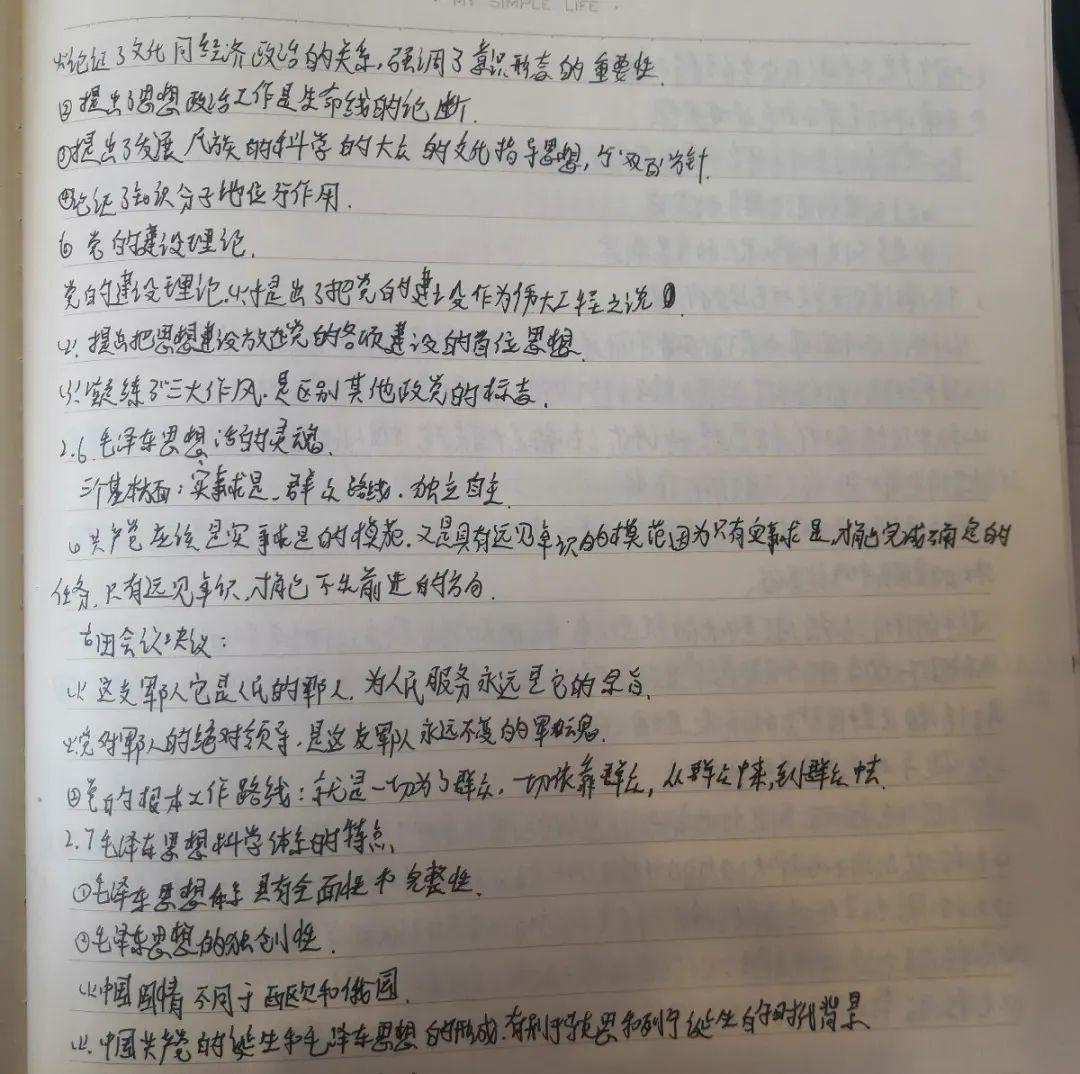 MY SIMPLE LIFE
(1)论证了文化同经济政治的关系,强调了意识形态的重要性.
②提出了思想政治工作是生命线的论断.
③提出了发展民族的科学的大众的文化指导思想,个"双百"方针.
④论证了知识分子地位与作用.
⑥ 党的建设理论.
党的建设理论.(1)提出了把党的建设作为伟大工程之说
(2).提出把思想建设放在党的各项建设的首位思想.
(3).凝练了"三大作风.是区别其他政党的标志.
2.6 毛泽东思想活的灵魂.
三个基本方面:实事求是.群众路线.独立自主.
共产党在该是实事求是的模范.又是具有远见卓识的模范因为只有实事求是,才能完成确定的
任务.只有远见卓识,才能不失前进的方向.
古田会议决议:
(1)这支军队它是人民的军队.为人民服务永远是它的宗旨.
(2).党对军队的绝对领导.是这支军队永远不变的军魂.
②党的根本工作路线:就是一切为了群众.一切依靠群众,从群众中来,到群众中去.
2.7毛泽东思想科学体系的特点
①毛泽东思想体系具有全面性和完整性.
②毛泽东思想的独创性.
(1)中国国情不同于西欧和俄国.
(2).中国共产党的诞生和毛泽东思想的形成.有别于马克思和列宁诞生的时代背景